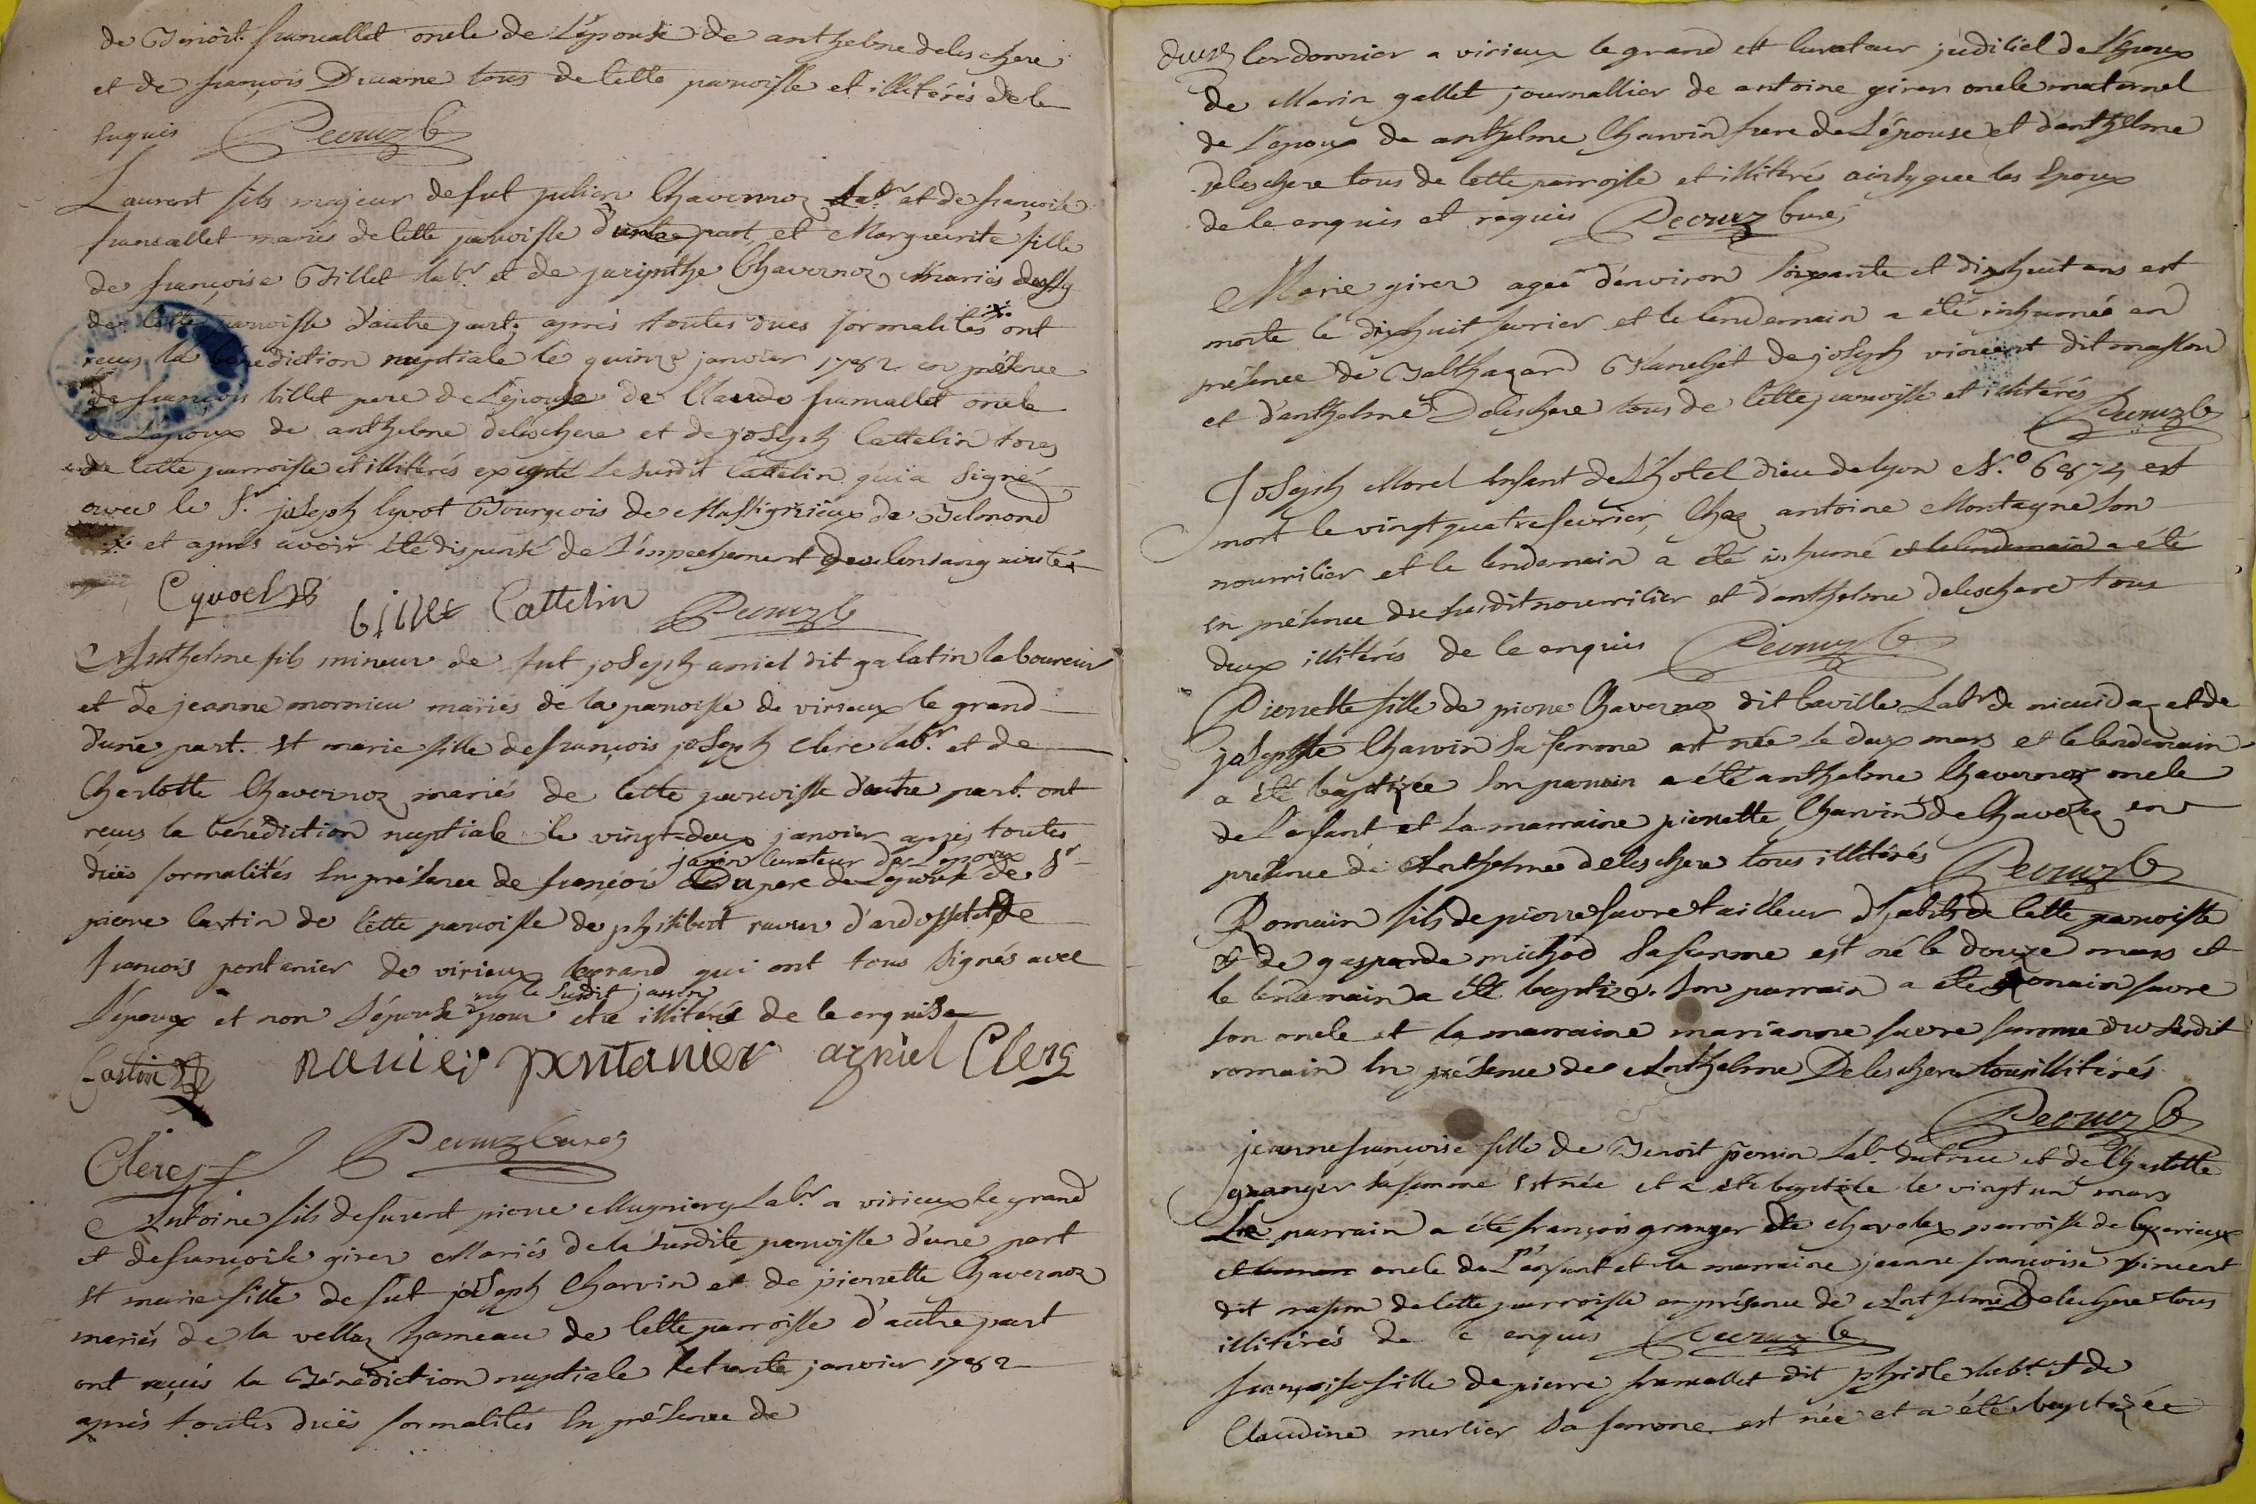 de Benoit francallet oncle de l'épouse de anthelme deleschere
et de françois tous de cette parroisse et illitérés de le
enquis Pecruz C
Laurent fils majeur de fut julien Chavernoz Labr et de françoise
francallet mariés de cette parroisse d'une part, et Marguerite fille
de françois Billet labr et de jacinthe Chavernoz mariés
de cette parroisse d'autre part, après toutes dues formalités ont
reçus la bénédiction nuptiale le quinze janvier 1782 en présence
de françois billet pere de L'épouse de Claude francallet oncle
de L'époux de anthelme deleschere et de joseph Cattelin tous
de cette parroisse et illitérés excepté le susdit Cattelin qui a signé
avec le Sr joseph Cyvoct Bourgeois de Massignieux de Belmond
et après avoir été dispensé de l'empechement de consanguinité
Cyvoct Billet Cattelin Pecruz C
Anthelme fils mineur de fut joseph dit galatin laboureur
et de jeanne mornieu mariés de la parroisse de virieux le grand
d'une part. et marie fille de françois joseph Clerc labr. et de
Charlotte Chavernoz mariés de cette parroisse d'autre part. ont
reçus la bénédiction nuptiale le vingt-deux janvier après toutes
janin curateur de L'epoux
dües formalités en présence de françois pere de L'epouse de Sr
pierre Castin de cette parroisse de philibert ravier
françois pontanier de virieux legrand qui ont tous signés avec
ny le susdit janin
L'époux et non L'épouse pour etre illitérés de le enquise
Castin ravier pontanier Clerc
Clerc Pecruz Curé
Antoine fils de furent pierre Mugniery Labr a virieux le grand
et de françoise girer Mariés de la susdite parroisse d'une part
et marie fille de fut joseph Charvin et de pierrette Chavernoz
mariés de la vellaz hameau de cette parroisse d'autre part
ont reçus la Bénédiction nuptiale le trente janvier 1782
après toutes dües formalités en présence de
Cordonnier a virieux le grand et curateur judiciel de l'époux
de Marin gallet journallier de antoine girer oncle maternel
de L'epoux de anthelme Charvin frere de L'épouse et d'anthelme
deleschere tous de cette parroisse et illitéré ainsy que les époux
de le enquis et requis Pecruz Curé
Marie girer agée d'environ soixante et dixhuit ans est
morte le dixhuit fevrier et le lendemain a été inhumée en
présence de Balthazard de joseph vincent dit masson
et d'anthelme Deleschere tous de cette parroisse et illitérés
Pecruz C
Joseph Morel enfant de L'hotel dieu de lyon N.o 6874 est
mort le vingt quatre fevrier, Chez antoine Montagne son
nourricier et le lendemain a été inhumé et le lendemain a été
en présence du susdit nourricier et d'anthelme deleschere tous
deux illitérés de le enquis Pecruz C
Pierrette fille de pierre Chavernoz dit Caville Labr de et de
josephte Charvin sa femme est née le deux mars et le lendemain
a été baptizée son parrain a été anthelme Chavernoz oncle
de L'enfant et la marraine pierrette Charvin de en
présence de Anthelme deleschere tous illitérés Pecruz C
Romain fils de pierre favre tailleur d'habits de cette parroisse
et de gasparde michod sa femme est né le douze mars et
le lendemain a été baptizé. son parrain a été romain favre
son oncle et la marraine marianne favre femme du susdit
romain en présence de Anthelme Deleschere tous illitérés
Pecruz C
jeanne françoise fille de Benoit perrin Labr. et de Charlotte
granger sa femme est née et a été baptizée le vingt un mars
Le parrain a été françois granger de parroisse de Ceyzerieux
oncle de L'enfant et la marraine jeanne françoise vincent
dit de cette parroisse en présence de Anthelme Deleschere tous
illitérés de le enquis Pecruz C
françoise fille de pierre francallet dit labr. et de
Claudine mercier sa femme est née et a été baptizée